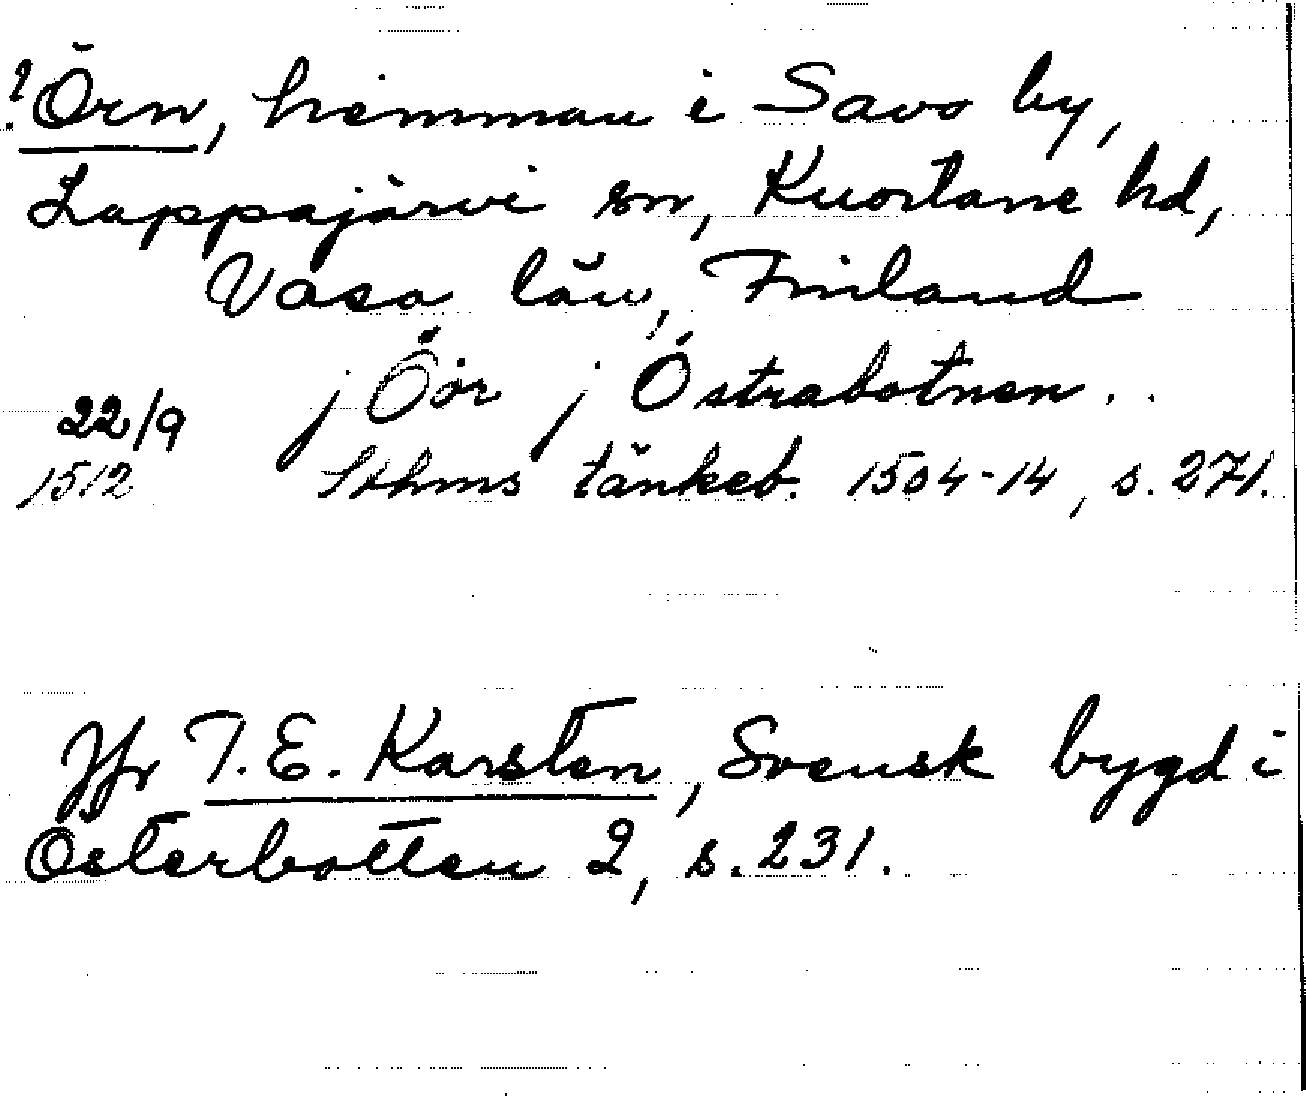 ?Örn, hemman i Savo by,
Lappajärvi sn, Kuortane hd,
Vasa län, Finland
22/9 j Öör j Östrabotnen..
1512 Sthms tänkeb. 1504-14, s. 271.
Jfr T. E. Karsten, Svensk bygd i
Österbotten 2, s. 231.